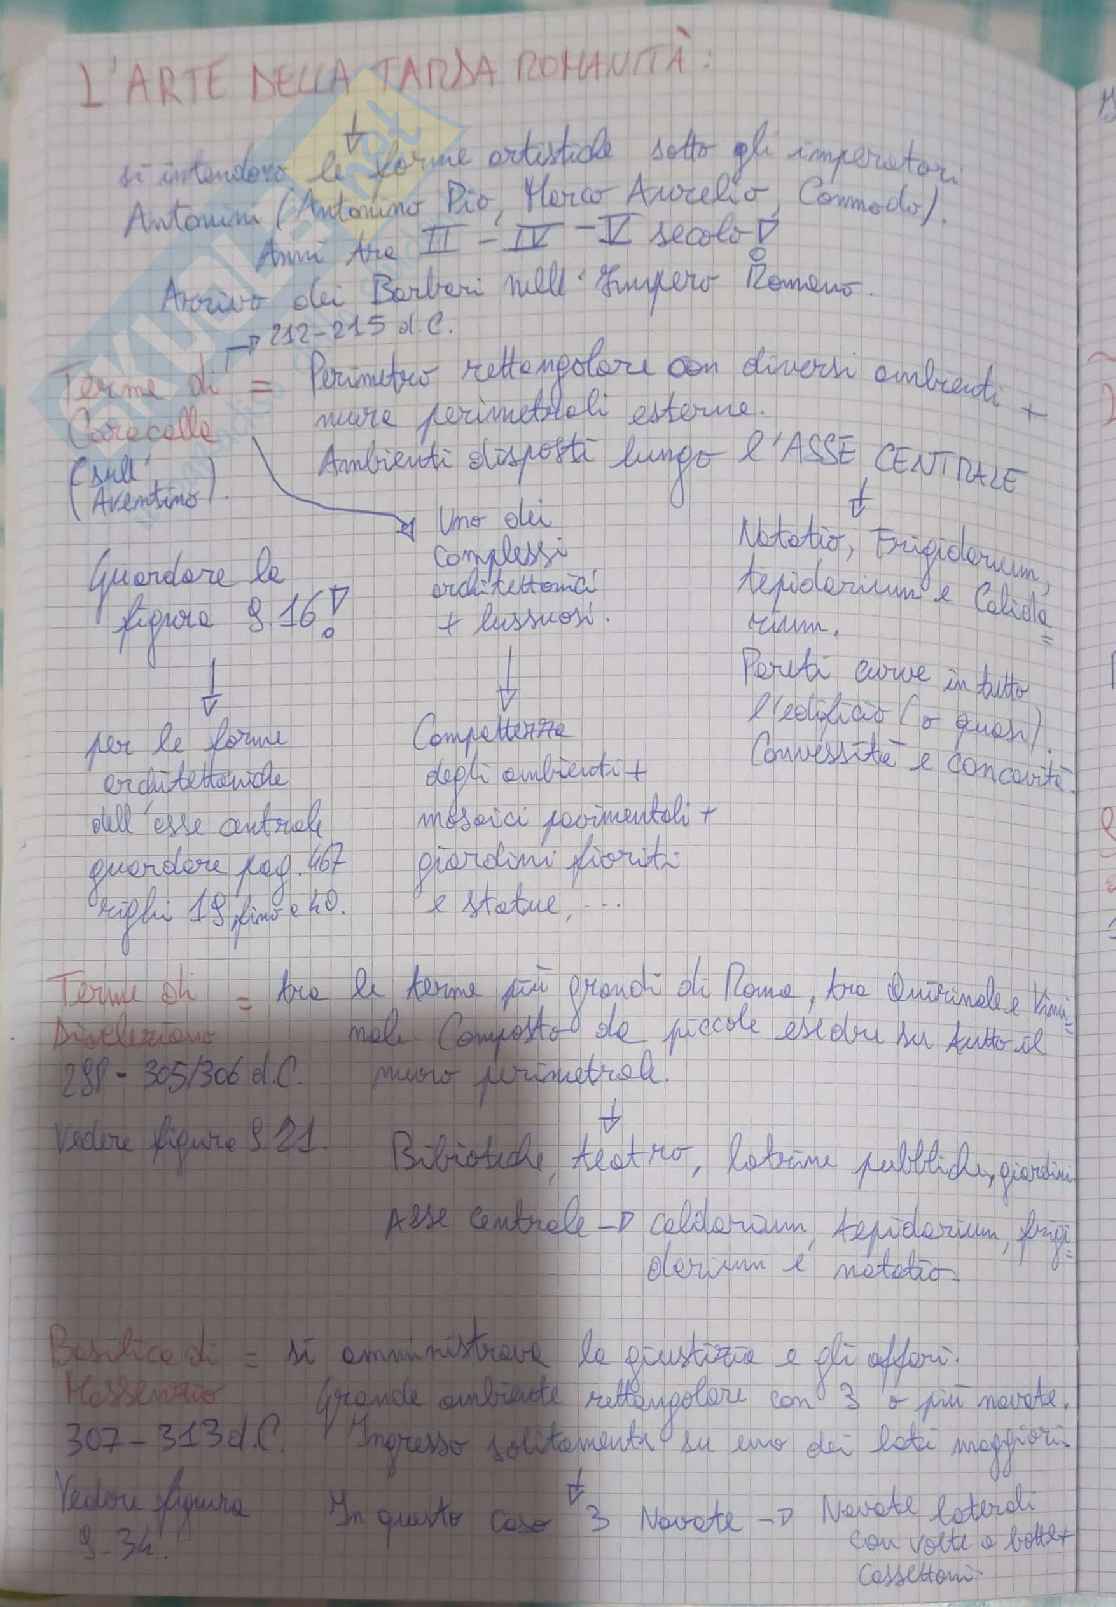 L'ARTE DELLA TARDA ROMANITÀ:
si intendono le forme artistiche sotto gli imperatori
Antonini (Antonino Pio, Marco Aurelio, Commodo).
Anni tra III - IV - V secolo!
Arrivo dei Barbari nell'Impero Romano.
→ 212-215 d.C.
Terme di = Perimetro rettangolare con diversi ambienti +
Caracalla mura perimetrali esterne.
(sull' Ambienti disposti lungo l'ASSE CENTRALE
Aventino).
Uno dei
complessi
architettonici
+ lussuosi.
Natatio, Frigidarium,
tepidarium e Calida=
rium.
Pareti curve in tutto
l'edificio (o quasi).
Convessità e concavità.
Guardare la
figura 9.16!
per le forme
architettoniche
dell'asse centrale
guardare pag. 467
righi 19, fino a 40.
Compattezza
degli ambienti +
mosaici pavimentali +
giardini fioriti
e statue, ...
Terme di = tra le terme più grandi di Roma, tra Quirinale e Vimi=
Diocleziano nale. Composto da piccole esedre su tutto il
298 - 305/306 d.C. muro perimetrale.
Vedere figura 9.21.
Bibioteche, teatro, latrine pubbliche, giardini
Asse centrale → calidarium, tepidarium, frigi=
darium e natatio
Basilica di = si amministrava la giustizia e gli affari.
Massenzio Grande ambiente rettangolare con 3 o più navate.
307-313 d.C. Ingresso solitamente su uno dei lati maggiori.
Vedere figura In questo caso 3 Navate → Navate laterali
9-34. con volte a botte+
cassettoni
SKUOLA
.net